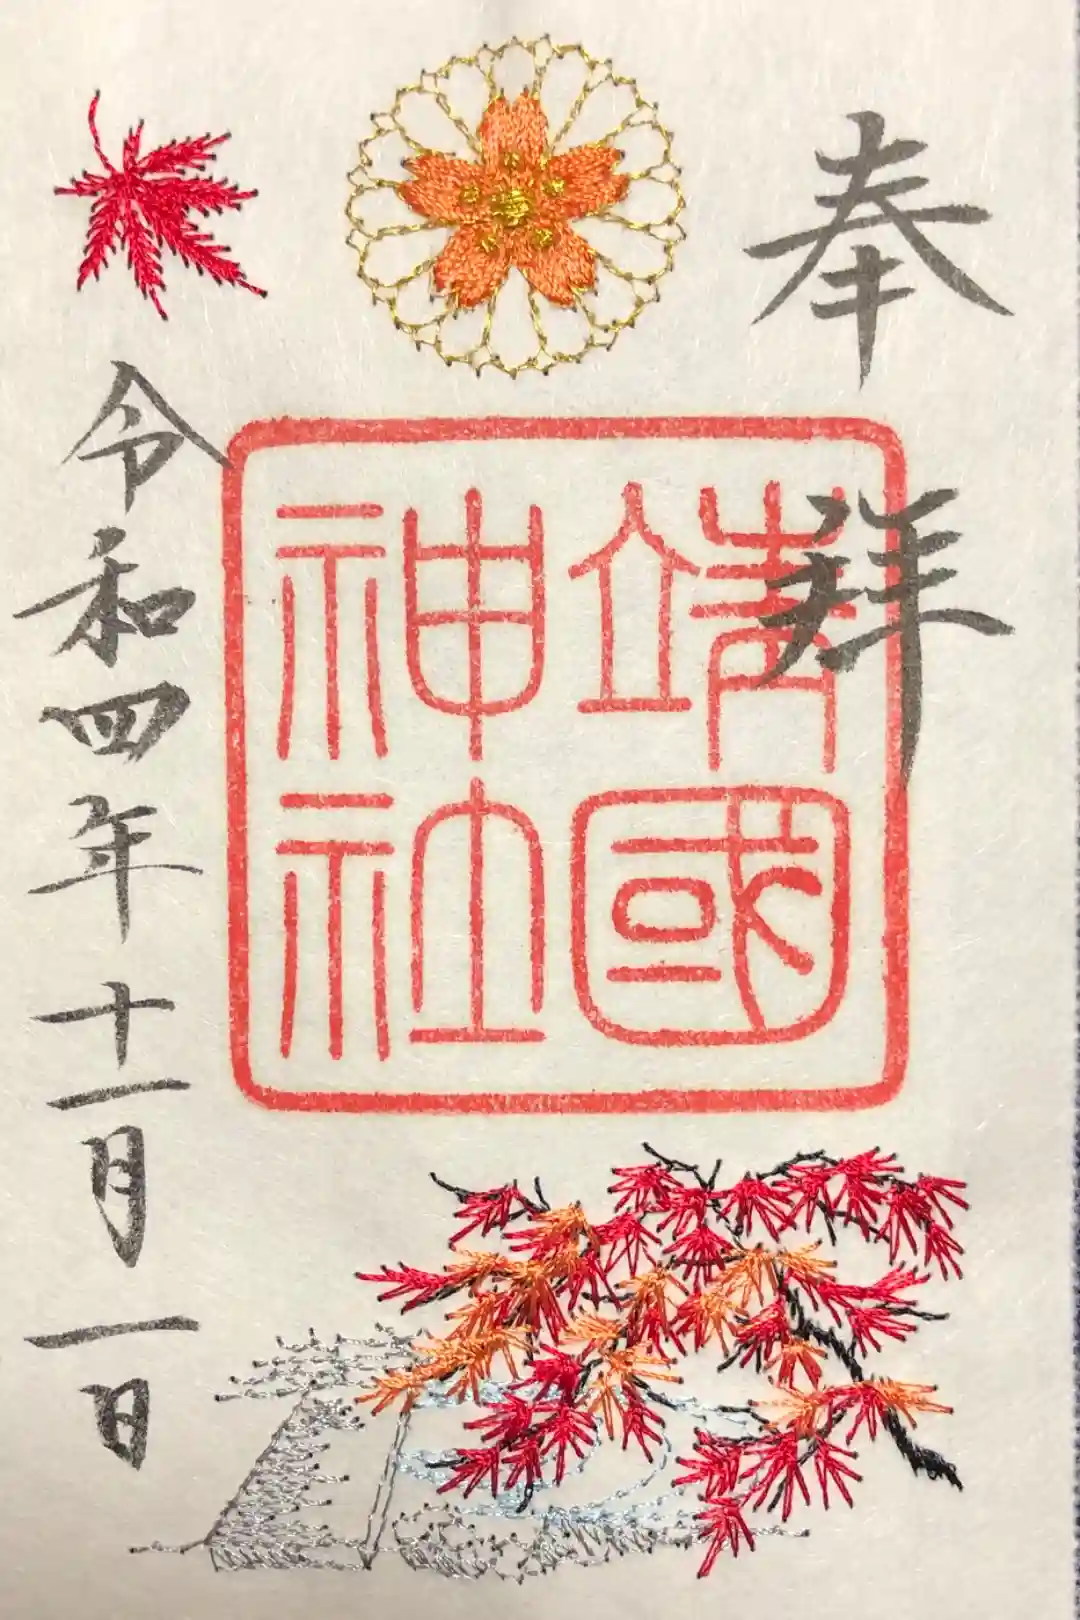 奉拜
靖國
神社
令和四年十一月一日